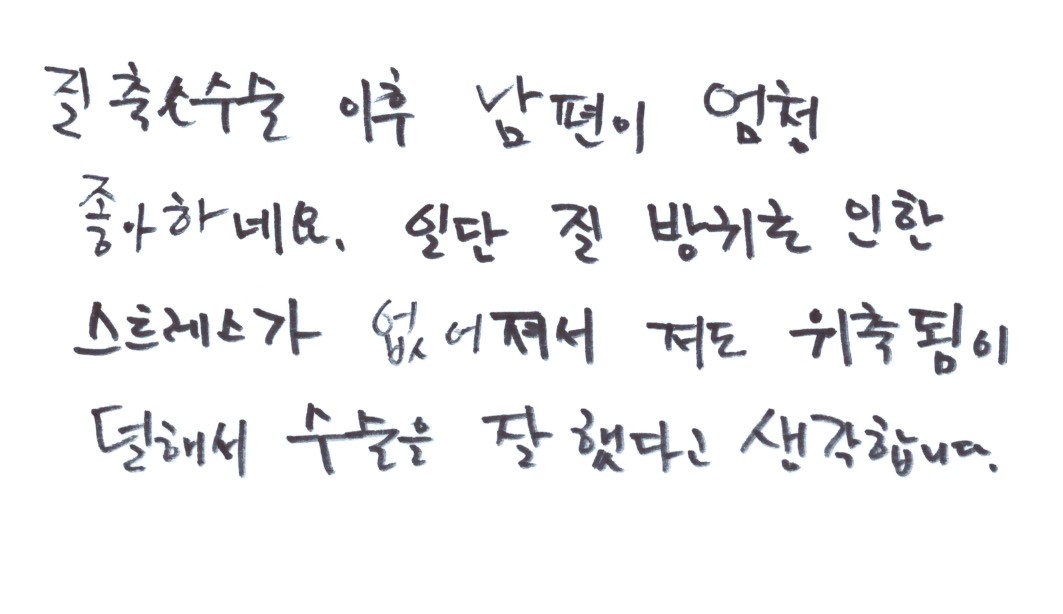 질축소수술 이후 남편이 엄청
좋아하네요. 일단 질 방귀로 인한
스트레스가 없어져서 저도 위축됨이
덜해서 수술을 잘 했다고 생각합니다.